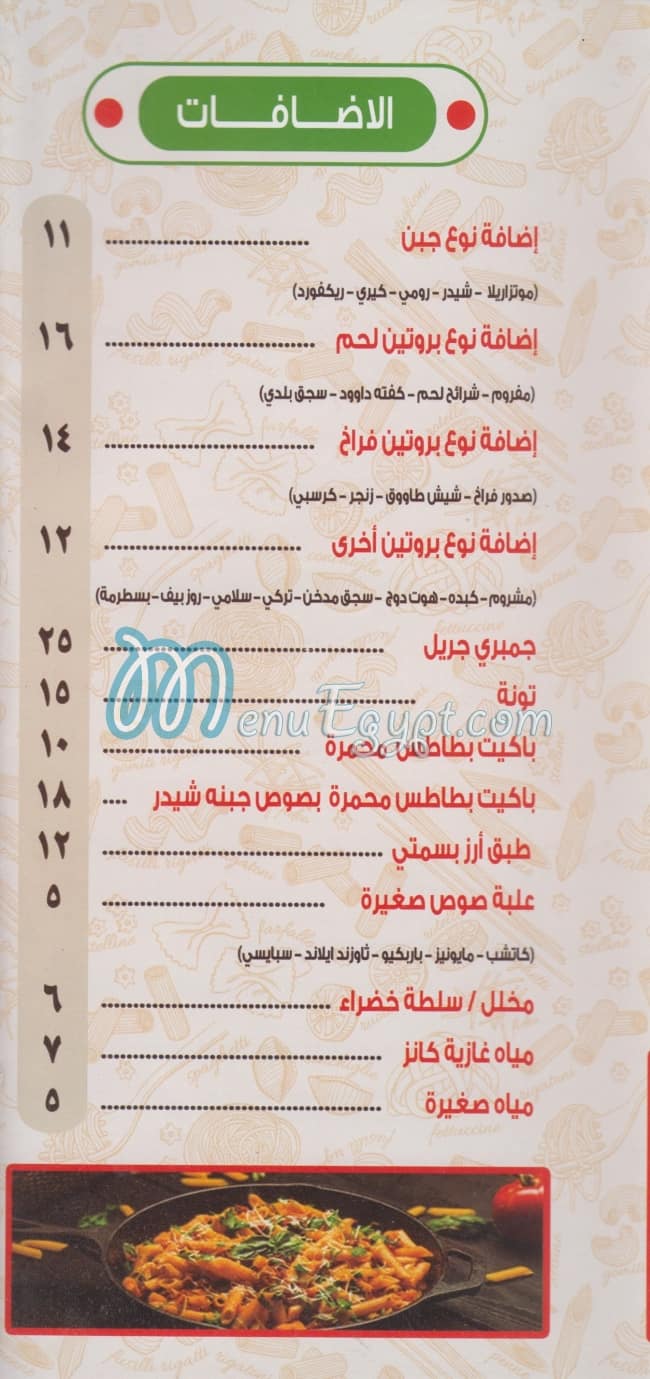 الاضافات
إضافة نوع جبن ........ ١١
(موتزاريلا - شيدر - رومي - كيري - ريكفورد)
إضافة نوع بروتين لحم ........ ١٦
(مفروم - شرائح لحم - كفته داوود - سجق بلدي)
إضافة نوع بروتين فراخ ........ ١٤
(صدور فراخ - شيش طاووق - زنجر - كرسبي)
إضافة نوع بروتين أخرى ........ ١٢
(مشروم - كبده - هوت دوج - سجق مدخن - تركي - سلامي - روز بيف - بسطرمة)
جمبري جريل ........ ٢٥
تونة ........ ١٥
MenuEgypt.com
باكيت بطاطس محمرة ........ ١٠
باكيت بطاطس محمرة بصوص جبنه شيدر .... ١٨
طبق أرز بسمتي ........ ١٢
علبة صوص صغيرة ........ ٥
(كاتشب - مايونيز - باربكيو - ثاوزند ايلاند - سبايسي)
مخلل / سلطة خضراء ........ ٦
مياه غازية كانز ........ ٧
مياه صغيرة ........ ٥